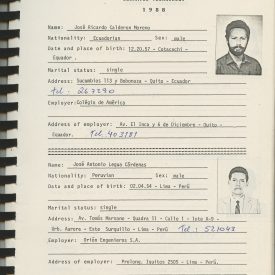 1 9 8 8
Name: José Ricardo Calderon Moreno
Nationality: Ecuadorian Sex: male
Date and place of birth: 12.20.57 - Cotacachi -
Ecuador.
Marital status: single
Address: Sucumbios 113 y Bobonaza - Quito - Ecuador
Tel. 267290
Employer: Colégio de América
Address of employer: Av. El Inca y 6 de Diciembre - Quito -
Ecuador. Tel. 403181
Name: José Antonio Legua Cárdenas
Nationality: Peruvian Sex: male
Date and place of birth: 02.04.54 - Lima - Perú
Marital status: single
Address: Av. Tomás Marsano - Quadra 11 - Calle 1 - loto A-9 -
Urb. Aurora - Este Surquillo - Lima - Perú Tel: 521043
Employer: Orión Engenieros S.A.
Address of employer: Prolong. Iquitos 2505 - Lima - Perú.